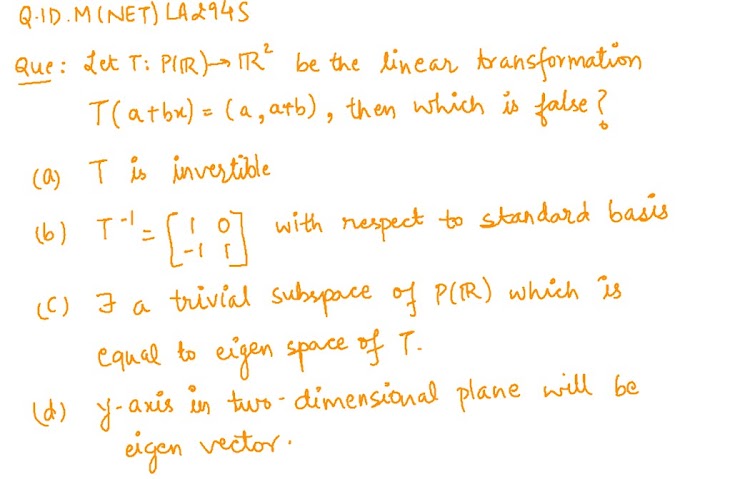 Q.ID. M(NET) LA294S
Que: Let T: P(ℝ)→ℝ² be the linear transformation
T(a+bx) = (a, a+b), then which is false?
(a) T is invertible
(b) T⁻¹ = [1 0; -1 1] with respect to standard basis
(c) ∃ a trivial subspace of P(ℝ) which is
equal to eigen space of T.
(d) y-axis in two-dimensional plane will be
eigen vector.